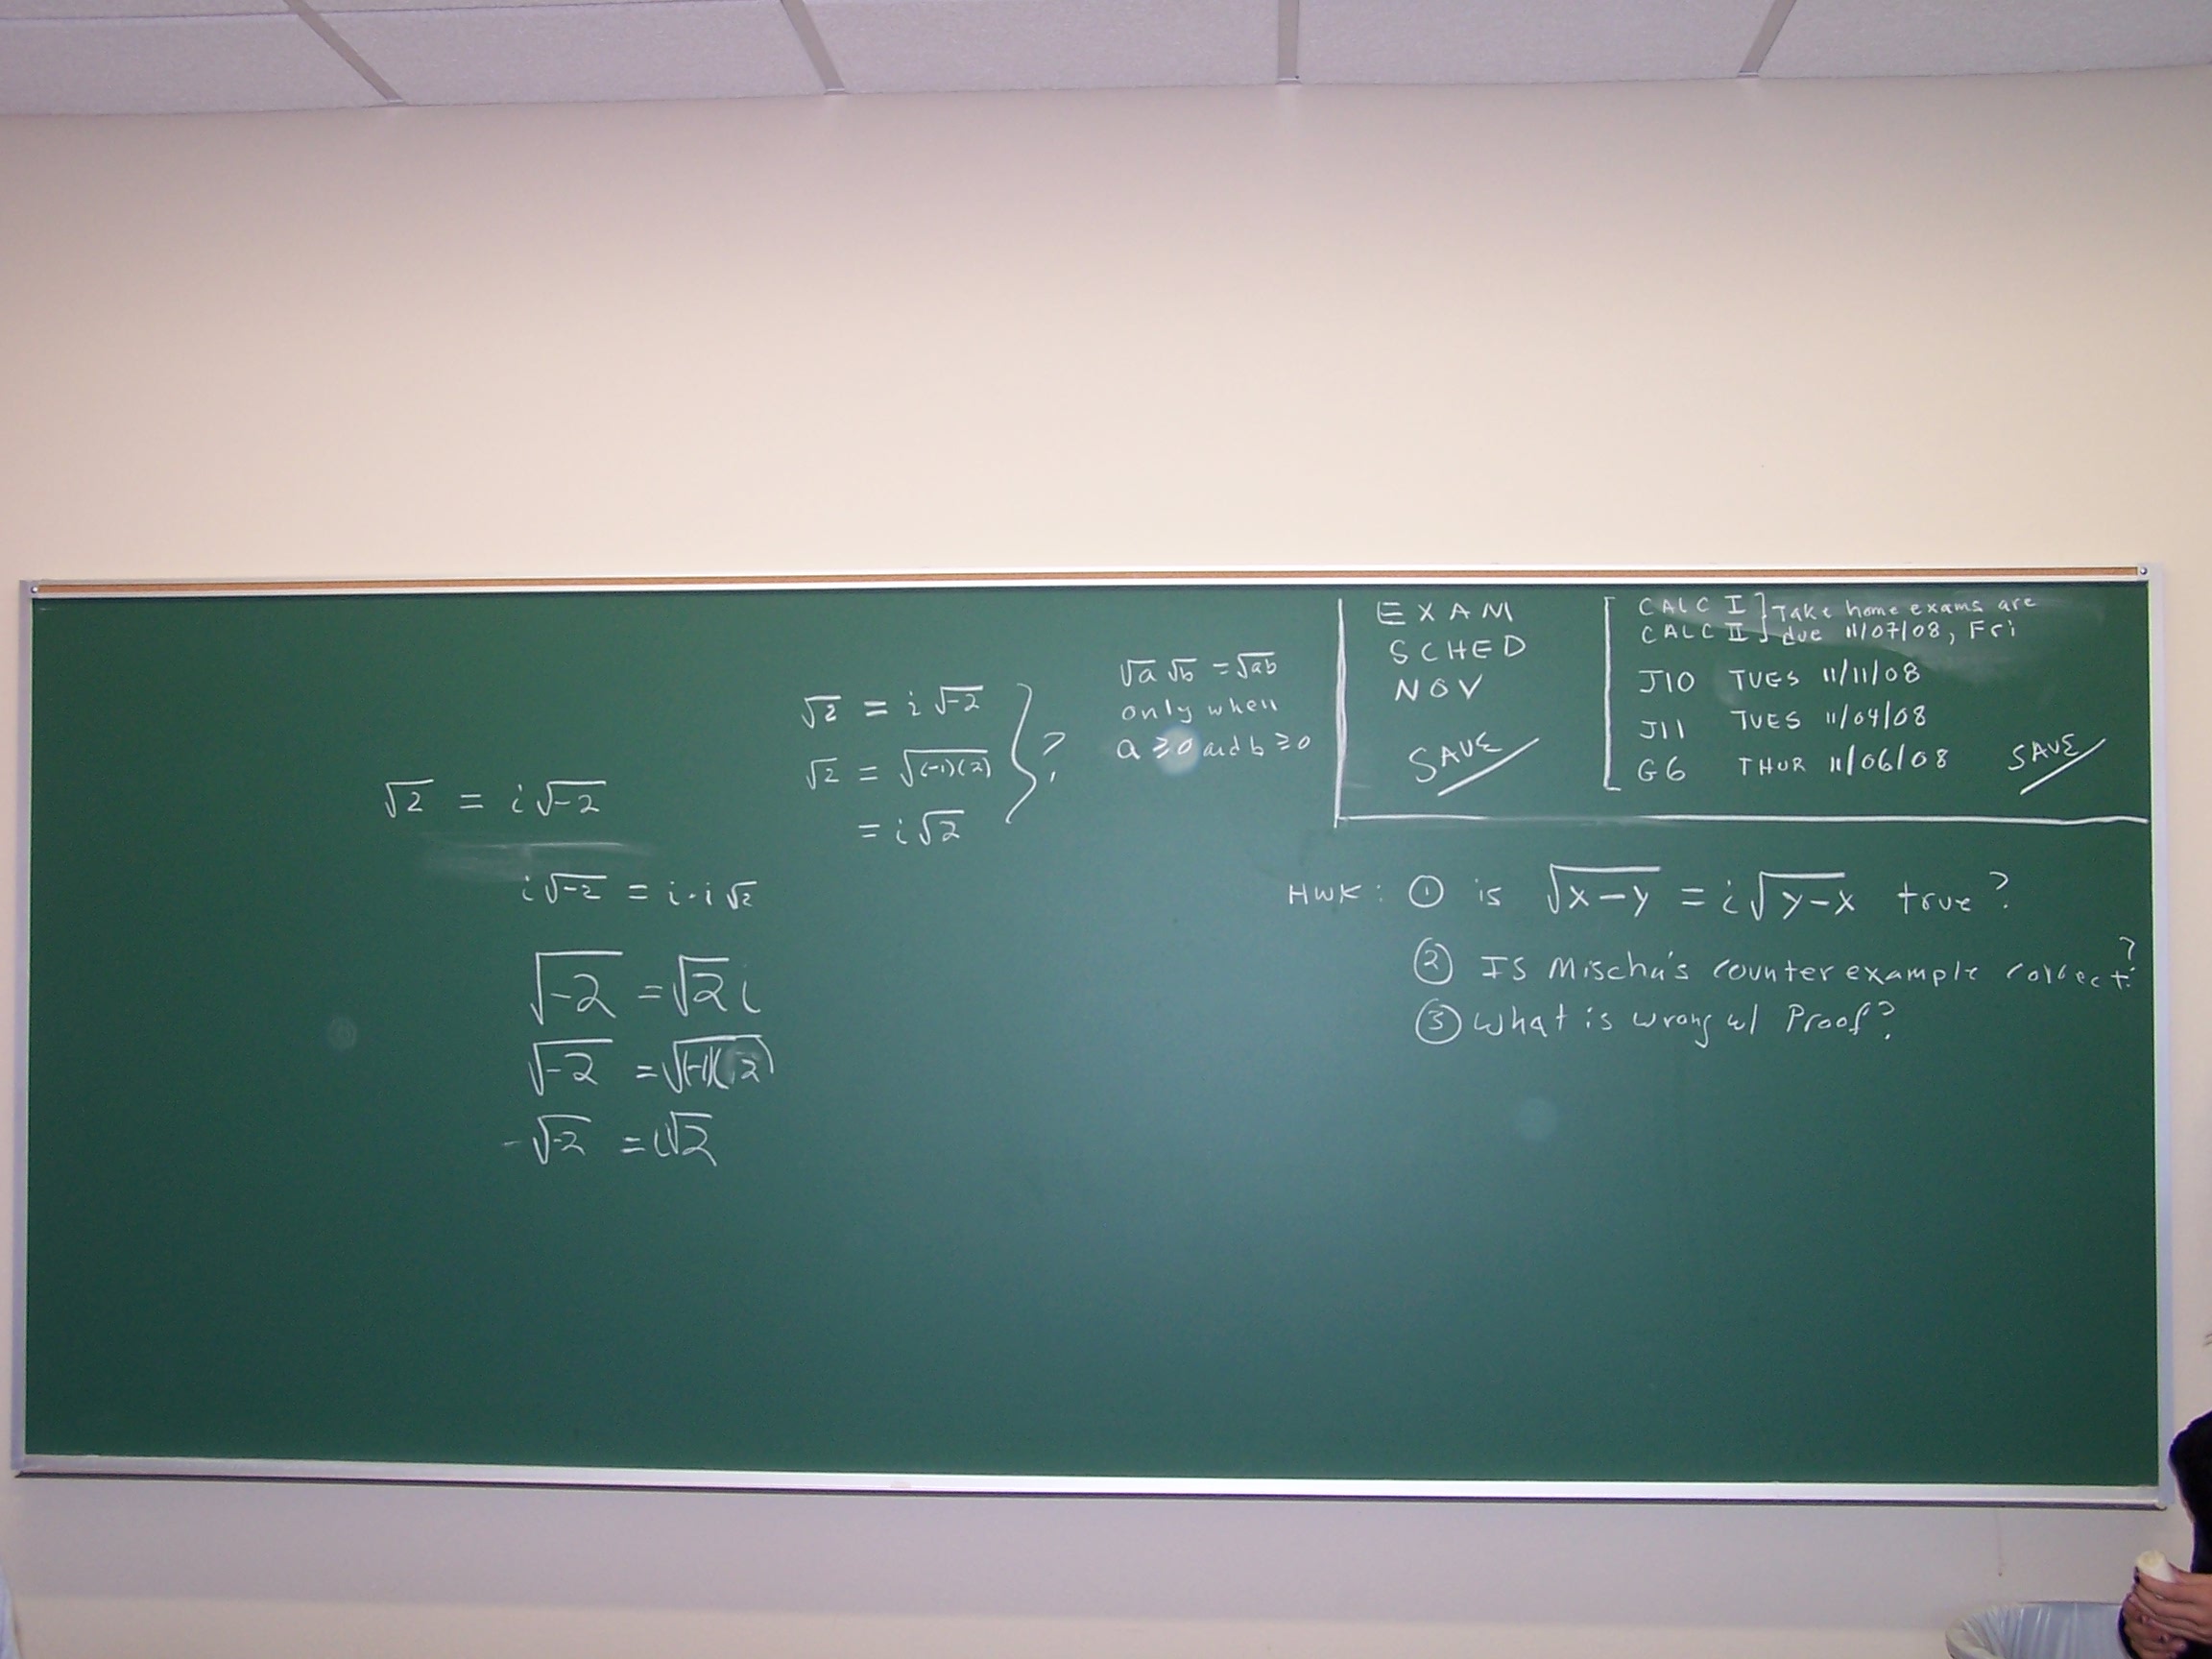 √2 = i√-2
i√-2 = i·i√2
√-2 = √2 i
√-2 = √(-1)(2)
-√-2 = i√2
√2 = i√-2
√2 = √(-1)(2)
= i√2
?
√a √b = √ab
only when
a ≥ 0 and b ≥ 0
EXAM
SCHED
NOV
SAVE
CALC I ] Take home exams are
CALC II ] due 11/07/08, Fri
J10 TUES 11/11/08
J11 TUES 11/04/08
G6 THUR 11/06/08
SAVE
HWK: ① is √x-y = i√y-x true?
② Is Mischa's counter example correct?
③ What is wrong w/ Proof?